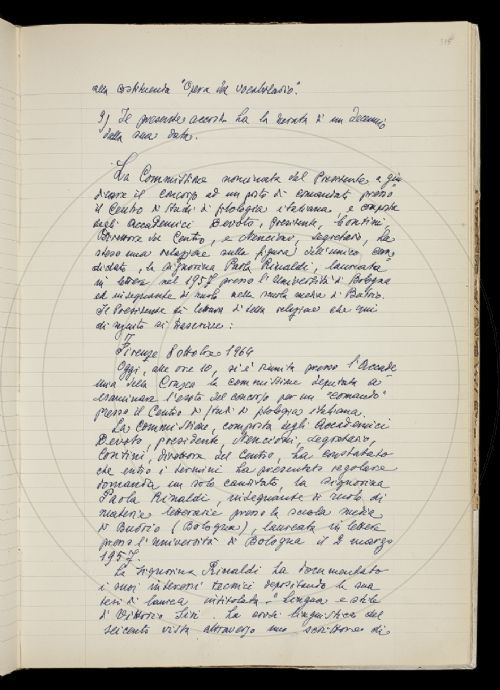 alla costituenda "Opera del Vocabolario".
9) Il presente accordo ha la durata di un decennio
dalla sua data.
La Commissione nominata dal Presidente a giu
dicare il concorso ad un posto di comandato presso
il Centro di studi di filologia italiana, e composta
dagli Accademici Devoto, presidente, Contini
Direttore del Centro, e Nencioni, segretario, ha
steso una relazione sulla figura dell'unico can-
didato, la signorina Paola Rinaldi, laureata
in lettere nel 1957 presso l'Università di Bologna
ed insegnante di ruolo nella scuola media di Budrio.
Il Presidente dà lettura di della relazione che qui
di seguito si trascrive:
Firenze 8 ottobre 1964
Oggi, alle ore 10, si è riunita presso l'Accade
mia della Crusca la commissione deputata a
esaminare l'esito del concorso per un "comando"
presso il Centro di studi di filologia italiana.
La Commissione, composta degli Accademici
Devoto, presidente, Nencioni, segretario,
Contini, direttore del Centro, ha constatato
che entro i termini ha presentato regolare
domanda un solo candidato, la signorina
Paola Rinaldi, insegnante di ruolo di
materie letterarie presso la scuola media
di Budrio (Bologna), laureata in lettere
presso l'Università di Bologna il 2 marzo
1957.
La signorina Rinaldi ha documentato
i suoi interessi tecnici depositando la sua
tesi di laurea intitolata "Lingua e stile
di Vittorio Siri. La crisi linguistica del
seicento vista attraverso uno scrittore di